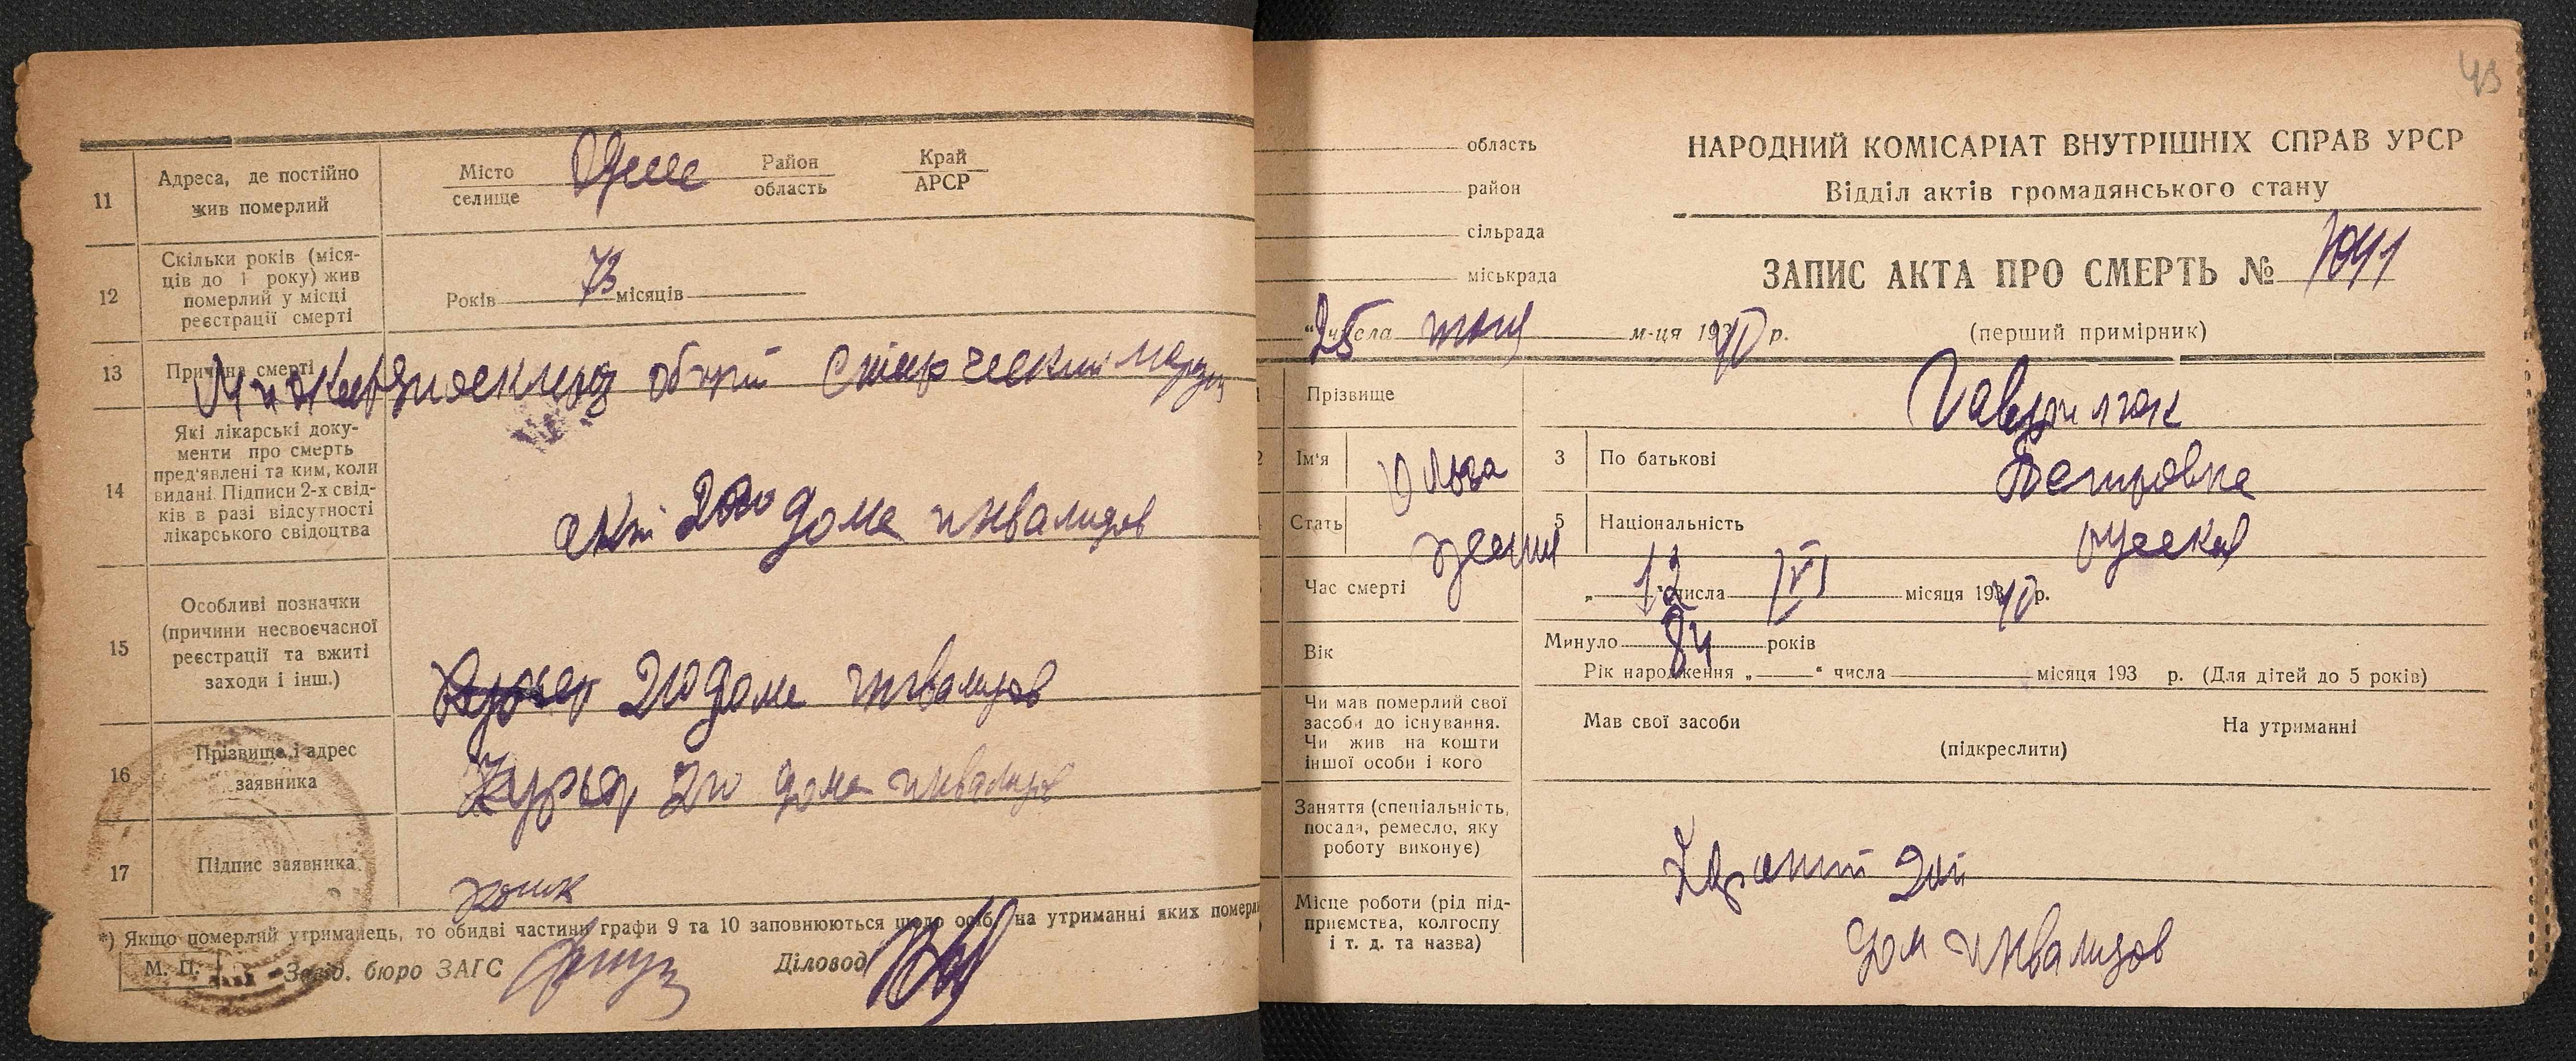 11
Адреса, де постійно
жив померлий
Місто
селище
Одесса
Район
область
Край
АРСР
12
Скільки років (міся-
ців до 1 року) жив
померлий у місці
реєстрації смерті
Років 73 місяців
13
Причина смерті
общий старческий
14
Які лікарські доку-
менти про смерть
пред'явлені та ким, коли
видані. Підписи 2-х свід-
ків в разі відсутності
лікарського свідоцтва
Акт 2го дома инвалидов
15
Особливі позначки
(причини несвоєчасної
реєстрації та вжиті
заходи і інш.)
2го дома инвалидов
16
Прізвище і адрес
заявника
Курьер 2го дома инвалидов
17
Підпис заявника
*) Якщо померлий утриманець, то обидві частини графи 9 та 10 заповнюються щодо осіб, на утриманні яких помер
М. П.
Завід. бюро ЗАГС
Діловод
43
область
район
сільрада
міськрада
НАРОДНИЙ КОМІСАРІАТ ВНУТРІШНІХ СПРАВ УРСР
Відділ актів громадянського стану
ЗАПИС АКТА ПРО СМЕРТЬ № 7041
"25 числа м-ця 1940 р.
(перший примірник)
Прізвище
Гаврилюк
2 Ім'я Ольга
3 По батькові Петровна
Стать женщ
5 Національність русская
Час смерті
„ 12 " числа VI місяця 1940 р.
Вік
Минуло 84 років
Рік народження „ " числа місяця 193 р. (Для дітей до 5 років)
Чи мав померлий свої
засоби до існування.
Чи жив на кошти
іншої особи і кого
Мав свої засоби
На утриманні
(підкреслити)
Заняття (спеціальність,
посада, ремесло, яку
роботу виконує)
Місце роботи (рід під-
приємства, колгоспу
і т. д. та назва)
дом инвалидов